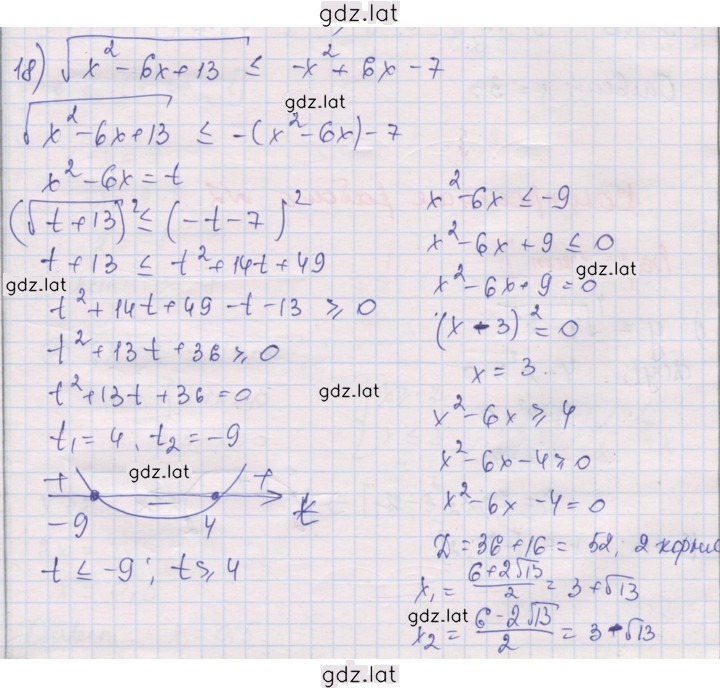 gdz.lat
18) √(x² - 6x + 13) ≤ -x² + 6x - 7
gdz.lat
√(x² - 6x + 13) ≤ -(x² - 6x) - 7
x² - 6x = t
(√(t + 13))² ≤ (-t - 7)²
t + 13 ≤ t² + 14t + 49
gdz.lat
t² + 14t + 49 - t - 13 ≥ 0
t² + 13t + 36 ≥ 0
t² + 13t + 36 = 0
gdz.lat
t₁ = 4, t₂ = -9
gdz.lat
+ − + t
-9 4
t ≤ -9; t ≥ 4
x² - 6x ≤ -9
x² - 6x + 9 ≤ 0
gdz.lat
x² - 6x + 9 = 0
(x - 3)² = 0
x = 3
x² - 6x ≥ 4
x² - 6x - 4 ≥ 0
x² - 6x - 4 = 0
D = 36 + 16 = 52, 2 корня
x₁ = (6 + 2√13)/2 = 3 + √13
gdz.lat
x₂ = (6 - 2√13)/2 = 3 - √13
gdz.lat